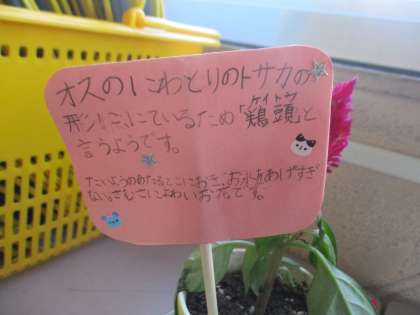 オスのにわとりのトサカの
形ににているため「鶏頭と
ケイトウ
言うようです。
たいようのあたるとこにおき、お水をあげすぎ
ない。さむさによわいお花です。